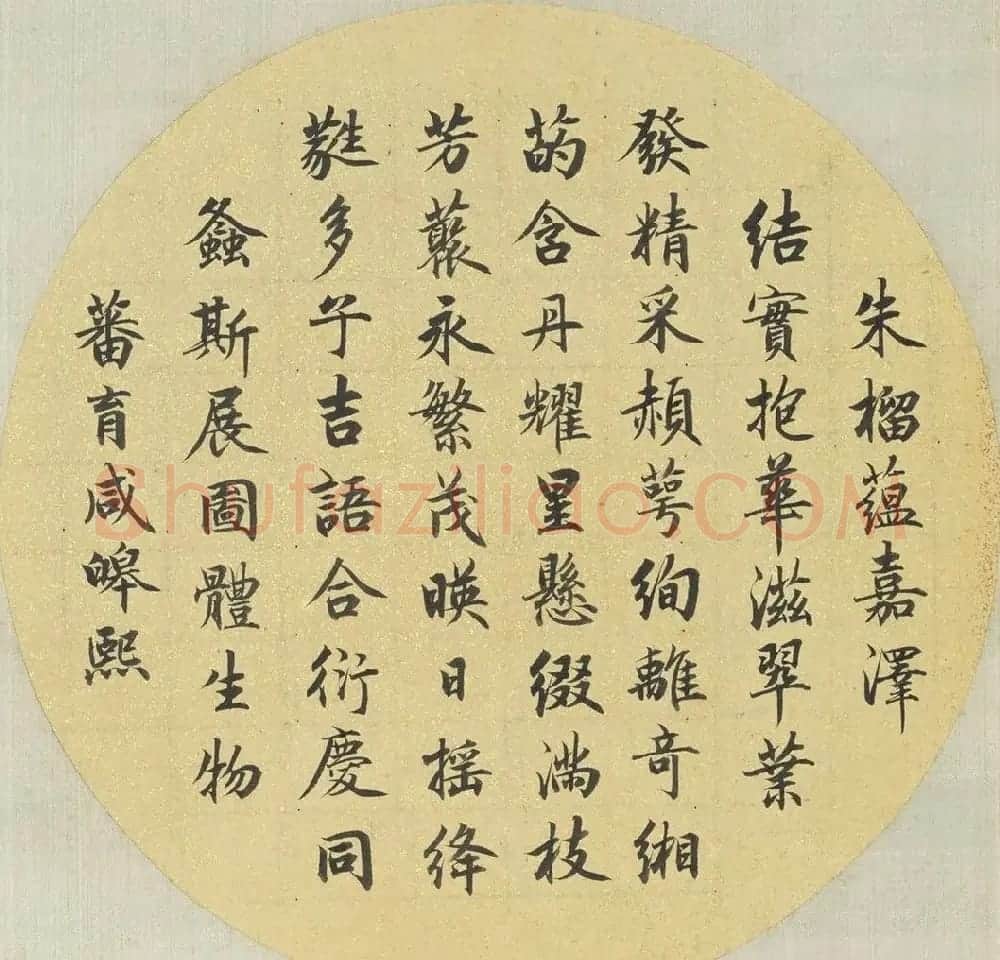 朱榴蕴嘉澤
結實抱華滋翠葉
發精采頳萼絢離奇緗
菂含丹耀星懸綴滿枝
芳藂永繁茂暎日摇絳
蕤多子吉語合衍慶同
螽斯展圖體生物
蕃育咸皞熙
Shufaziliao.COM